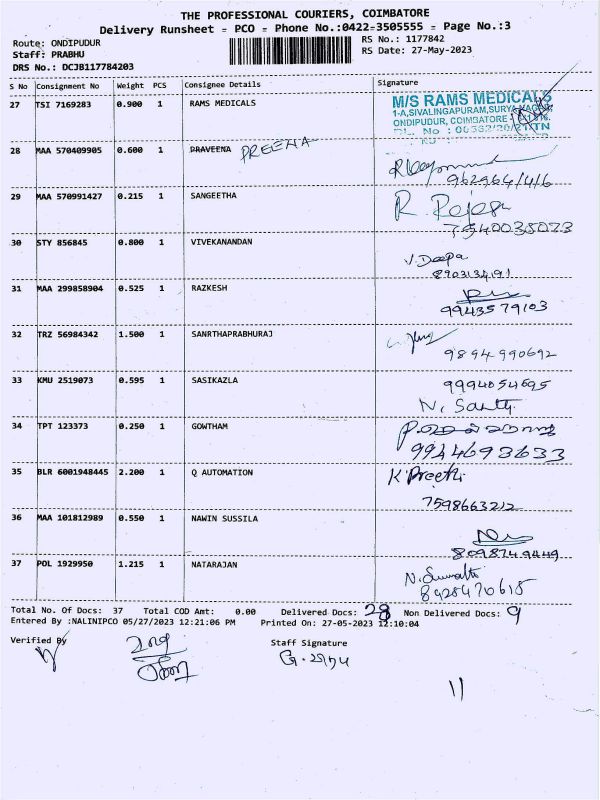 THE PROFESSIONAL COURIERS, COIMBATORE
Delivery Runsheet = PCO = Phone No.:0422-3505555 = Page No.:3
Route: ONDIPUDUR RS No.: 1177842
Staff: PRABHU RS Date: 27-May-2023
DRS No.: DCJB117784203
S No Consignment No Weight PCS Consignee Details Signature
27 TSI 7169283 0.900 1 RAMS MEDICALS
M/S RAMS MEDICALS
1-A,SIVALINGAPURAM,SURYA NAGAR,
ONDIPUDUR, COIMBATORE -
28 MAA 570409905 0.600 1 PRAVEENA PREENA
962964/4/6
29 MAA 570991427 0.215 1 SANGEETHA
R. Rajesh
7540035073
30 STY 856845 0.800 1 VIVEKANANDAN
V. Deepa
8903134191
31 MAA 299858904 0.525 1 RAZKESH
9943579103
32 TRZ 56984342 1.500 1 SANRTHAPRABHURAJ
9894990692
33 KMU 2519073 0.595 1 SASIKAZLA
9994054695
34 TPT 123373 0.250 1 GOWTHAM
9944693633
35 BLR 6001948445 2.200 1 Q AUTOMATION
K Preethi
7598663212
36 MAA 101812989 0.550 1 NAWIN SUSSILA
8098749449
37 POL 1929950 1.215 1 NATARAJAN
8928470615
Total No. Of Docs: 37 Total COD Amt: 0.00 Delivered Docs: 28 Non Delivered Docs: 9
Entered By :NALINIPCO 05/27/2023 12:21:06 PM Printed On: 27-05-2023 12:10:04
Verified By Staff Signature
11